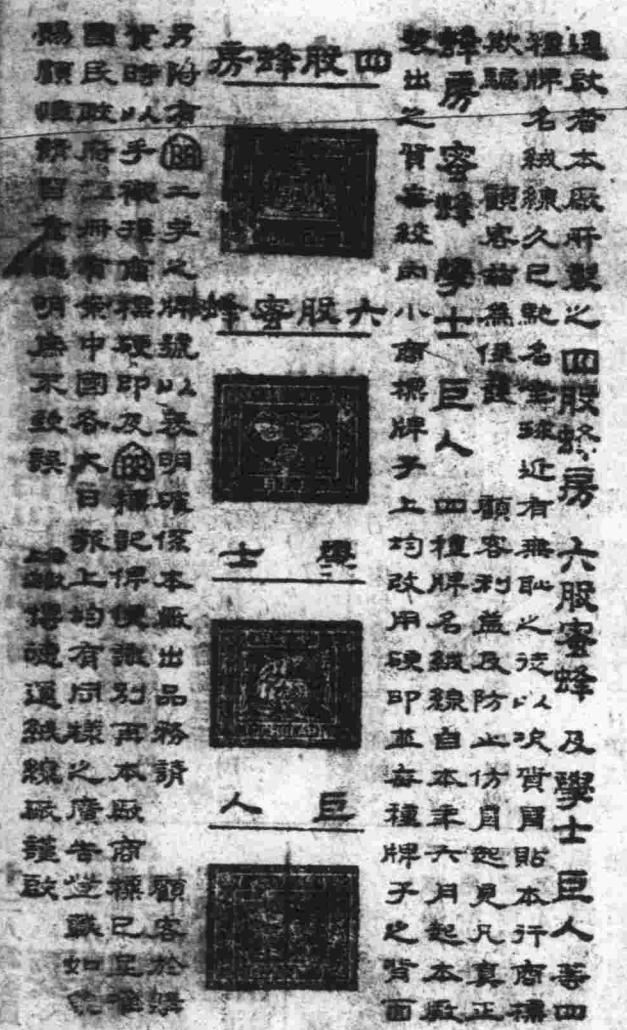 逕啟者本廠所製之四股蜂房 六股蜜蜂 及學士 巨人 等四
種牌名絨線久已馳名全球近有無恥之徒以次貨冒貼本行商標
欺騙 顧客茲為保護 顧客利益及防止仿冒起見凡真正
蜂房 蜜蜂 學士 巨人 四種牌名絨線自本年六月起本廠
裝出之背每絞內小商標牌子上均改用硬印並每種牌子之背面
四股蜂房
六股蜜蜂
學士
巨人
另附有 二字之牌號以表明確係本廠出品務請 顧客於購
貨時以手襯擇商標硬印及 標記俾便識別再本廠商標已呈准
國民政府註冊有案中國各大日報上均有同樣之廣告登載如
賜顧 請 明庶不致誤
博德運絨線廠謹啟